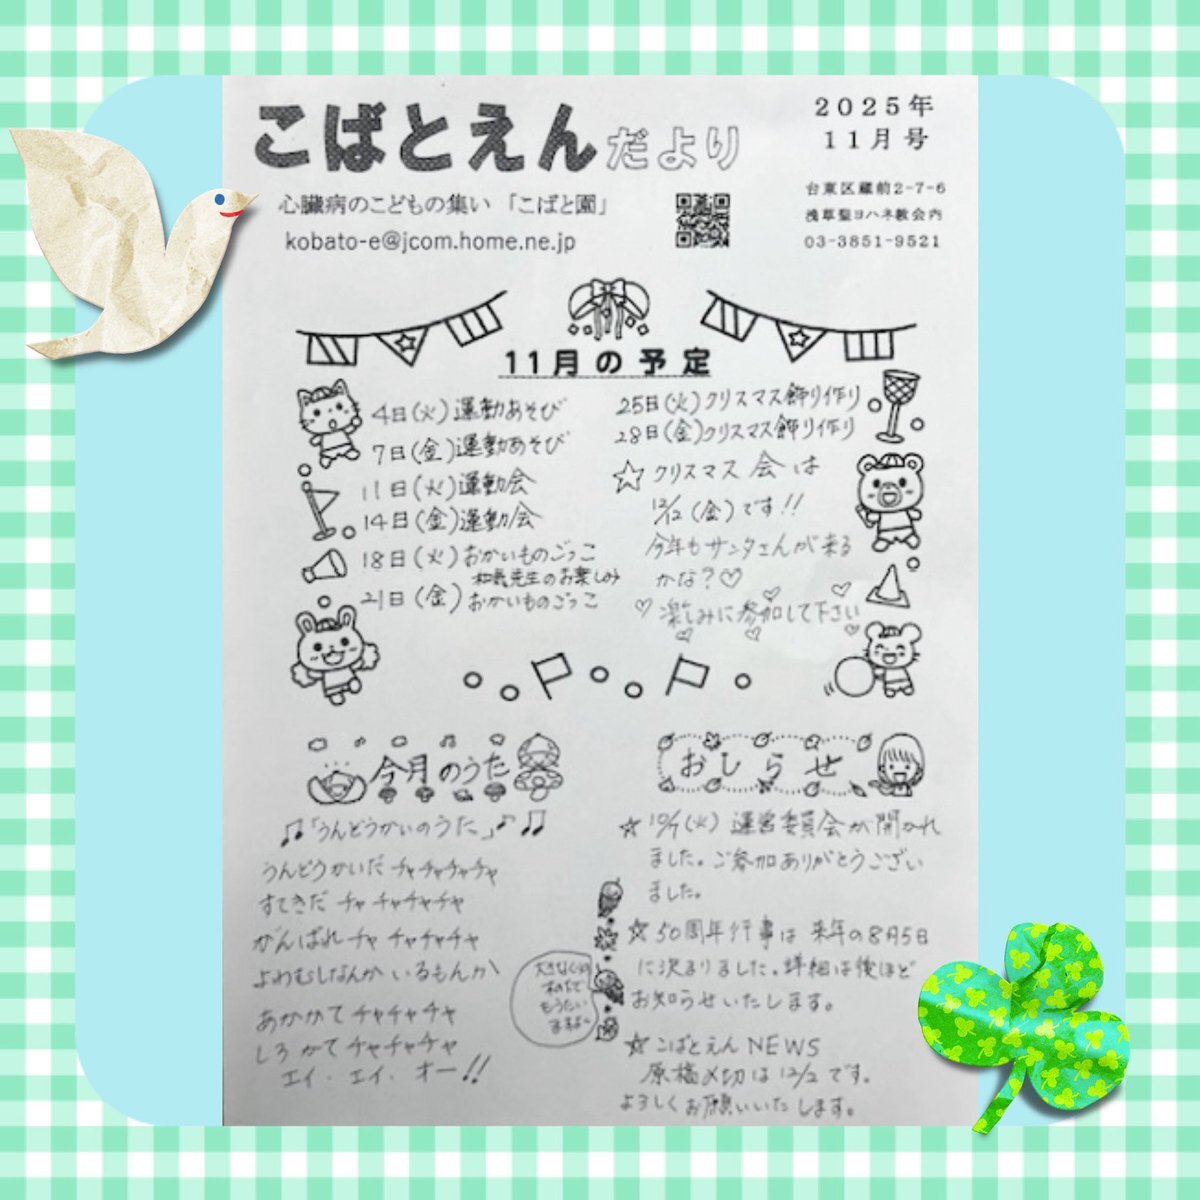 こばとえんだより
2025年
11月号
心臓病のこどもの集い「こばと園」
kobato-e@jcom.home.ne.jp
台東区蔵前2-7-6
浅草聖ヨハネ教会内
03-3851-9521
11月の予定
4日(火)運動あそび
7日(金)運動あそび
11日(火)運動会
14日(金)運動会
18日(火)おかいものごっこ
先生のお楽しみ
21日(金)おかいものごっこ
25日(火)クリスマス飾り作り
28日(金)クリスマス飾り作り
☆クリスマス会は
12/12(金)です!!
今年もサンタさんが来る
かな?♡
♡楽しみに参加して下さい
今月のうた
♫「うんどうかいのうた」♪♫
うんどうかいだ チャチャチャチャ
すてきだ チャ チャチャチャ
がんばれチャ チャチャチャ
よわむしなんか いるもんか
あかかて チャチャチャ
しろ かて チャチャチャ
エイ・エイ・オー!!
おしらせ
☆10/7(火) 運営委員会が開かれ
ました。ご参加ありがとうござい
ました。
☆50周年行事は 来年の8月5日
に決まりました。詳細は後ほど
お知らせいたします。
☆こばとえんNEWS
原稿〆切は12/2です。
よろしくお願いいたします。